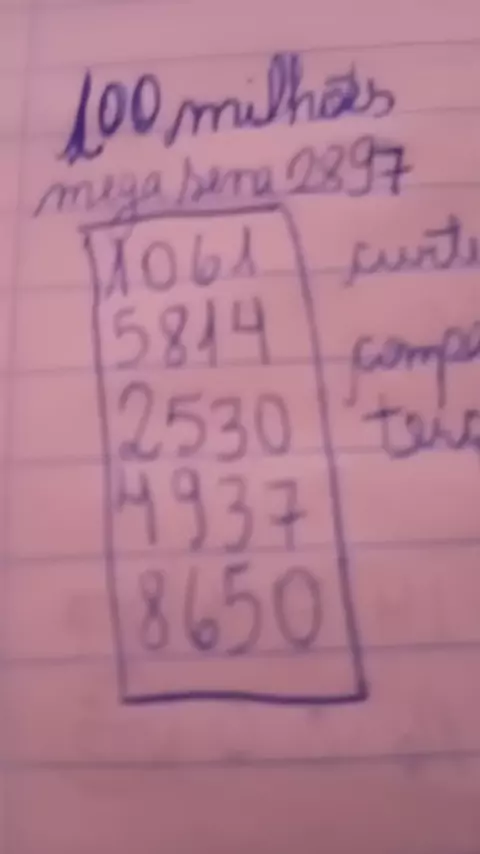 100 milhões
mega sena 2897
1061
5814
2530
4937
8650
curte
compa
terç